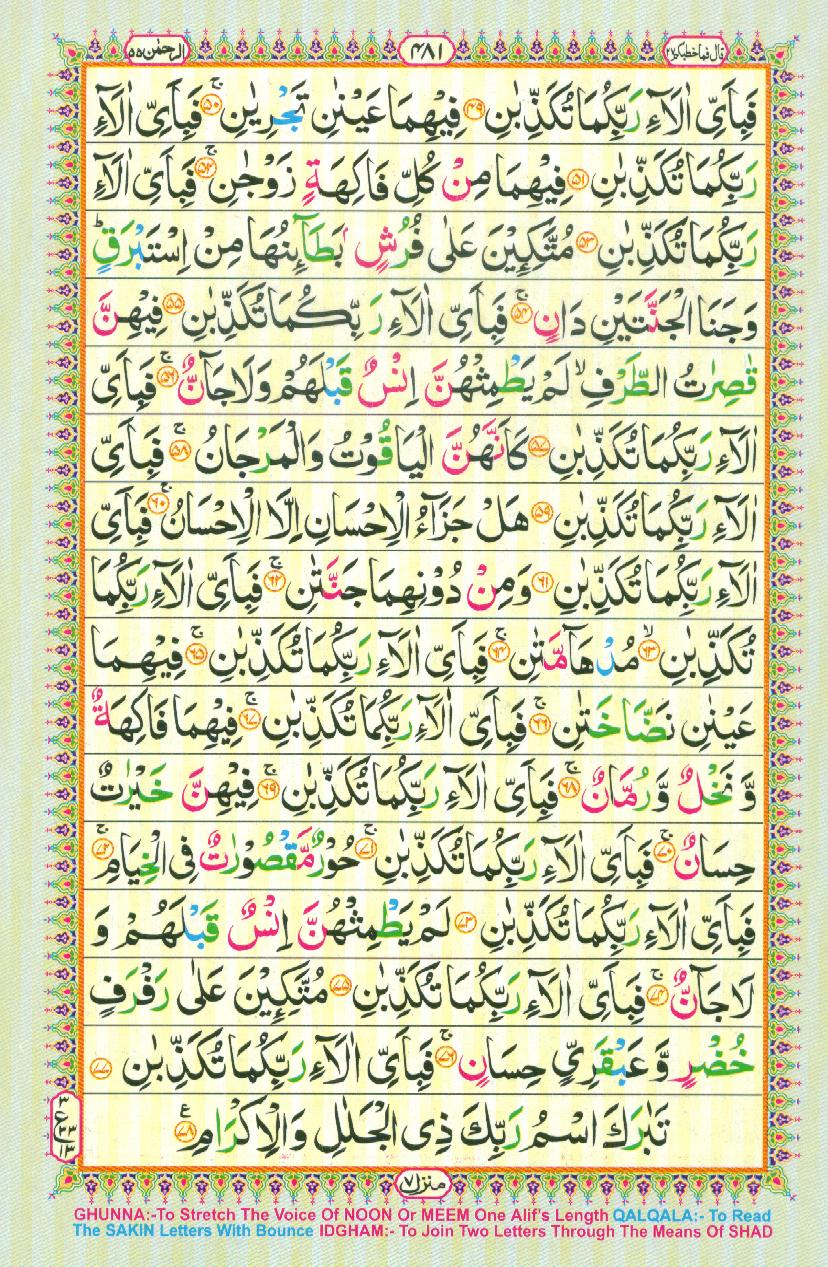 قال فما خطبكم ٢٧
٤٨١
الرحمٰن ٥٥
فَبِاَىِّ اٰلَآءِ رَبِّكُمَا تُكَذِّبٰنِ ﴿٤٩﴾ فِيْهِمَا عَيْنٰنِ تَجْرِيٰنِ ۚ﴿٥٠﴾ فَبِاَىِّ اٰلَآءِ
رَبِّكُمَا تُكَذِّبٰنِ ﴿٥١﴾ فِيْهِمَا مِنْ كُلِّ فَاكِهَةٍ زَوْجٰنِ ۚ﴿٥٢﴾ فَبِاَىِّ اٰلَآءِ
رَبِّكُمَا تُكَذِّبٰنِ ﴿٥٣﴾ مُتَّكِـِٕيْنَ عَلٰى فُرُشٍۭ بَطَآىِٕنُهَا مِنْ اِسْتَبْرَقٍ ؕ
وَجَنَا الْجَنَّتَيْنِ دَانٍ ۚ﴿٥٤﴾ فَبِاَىِّ اٰلَآءِ رَبِّكُمَا تُكَذِّبٰنِ ﴿٥٥﴾ فِيْهِنَّ
قٰصِرٰتُ الطَّرْفِ ۙ لَمْ يَطْمِثْهُنَّ اِنْسٌ قَبْلَهُمْ وَلَا جَآنٌّ ۚ﴿٥٦﴾ فَبِاَىِّ
اٰلَآءِ رَبِّكُمَا تُكَذِّبٰنِ ﴿٥٧﴾ كَاَنَّهُنَّ الْيَاقُوْتُ وَالْمَرْجَانُ ۚ﴿٥٨﴾ فَبِاَىِّ
اٰلَآءِ رَبِّكُمَا تُكَذِّبٰنِ ﴿٥٩﴾ هَلْ جَزَآءُ الْاِحْسَانِ اِلَّا الْاِحْسَانُ ۚ﴿٦٠﴾ فَبِاَىِّ
اٰلَآءِ رَبِّكُمَا تُكَذِّبٰنِ ﴿٦١﴾ وَمِنْ دُوْنِهِمَا جَنَّتٰنِ ۚ﴿٦٢﴾ فَبِاَىِّ اٰلَآءِ رَبِّكُمَا
تُكَذِّبٰنِ ۙ﴿٦٣﴾ مُدْهَآمَّتٰنِ ۚ﴿٦٤﴾ فَبِاَىِّ اٰلَآءِ رَبِّكُمَا تُكَذِّبٰنِ ۚ﴿٦٥﴾ فِيْهِمَا
عَيْنٰنِ نَضَّاخَتٰنِ ۚ﴿٦٦﴾ فَبِاَىِّ اٰلَآءِ رَبِّكُمَا تُكَذِّبٰنِ ۚ﴿٦٧﴾ فِيْهِمَا فَاكِهَةٌ
وَّ نَخْلٌ وَّرُمَّانٌ ۚ﴿٦٨﴾ فَبِاَىِّ اٰلَآءِ رَبِّكُمَا تُكَذِّبٰنِ ۚ﴿٦٩﴾ فِيْهِنَّ خَيْرٰتٌ
حِسَانٌ ۚ﴿٧٠﴾ فَبِاَىِّ اٰلَآءِ رَبِّكُمَا تُكَذِّبٰنِ ۚ﴿٧١﴾ حُوْرٌ مَّقْصُوْرٰتٌ فِى الْخِيَامِ ۚ﴿٧٢﴾
فَبِاَىِّ اٰلَآءِ رَبِّكُمَا تُكَذِّبٰنِ ﴿٧٣﴾ لَمْ يَطْمِثْهُنَّ اِنْسٌ قَبْلَهُمْ وَ
لَا جَآنٌّ ۚ﴿٧٤﴾ فَبِاَىِّ اٰلَآءِ رَبِّكُمَا تُكَذِّبٰنِ ﴿٧٥﴾ مُتَّكِـِٕيْنَ عَلٰى رَفْرَفٍ
خُضْرٍ وَّ عَبْقَرِىٍّ حِسَانٍ ۚ﴿٧٦﴾ فَبِاَىِّ اٰلَآءِ رَبِّكُمَا تُكَذِّبٰنِ ﴿٧٧﴾
تَبٰرَكَ اسْمُ رَبِّكَ ذِى الْجَلٰلِ وَالْاِكْرَامِ ﴿٧٨﴾ ع
٣
ع ٣٣
١٣
منزل ٧
GHUNNA:-To Stretch The Voice Of NOON Or MEEM One Alif's Length QALQALA:- To Read
The SAKIN Letters With Bounce IDGHAM:- To Join Two Letters Through The Means Of SHAD